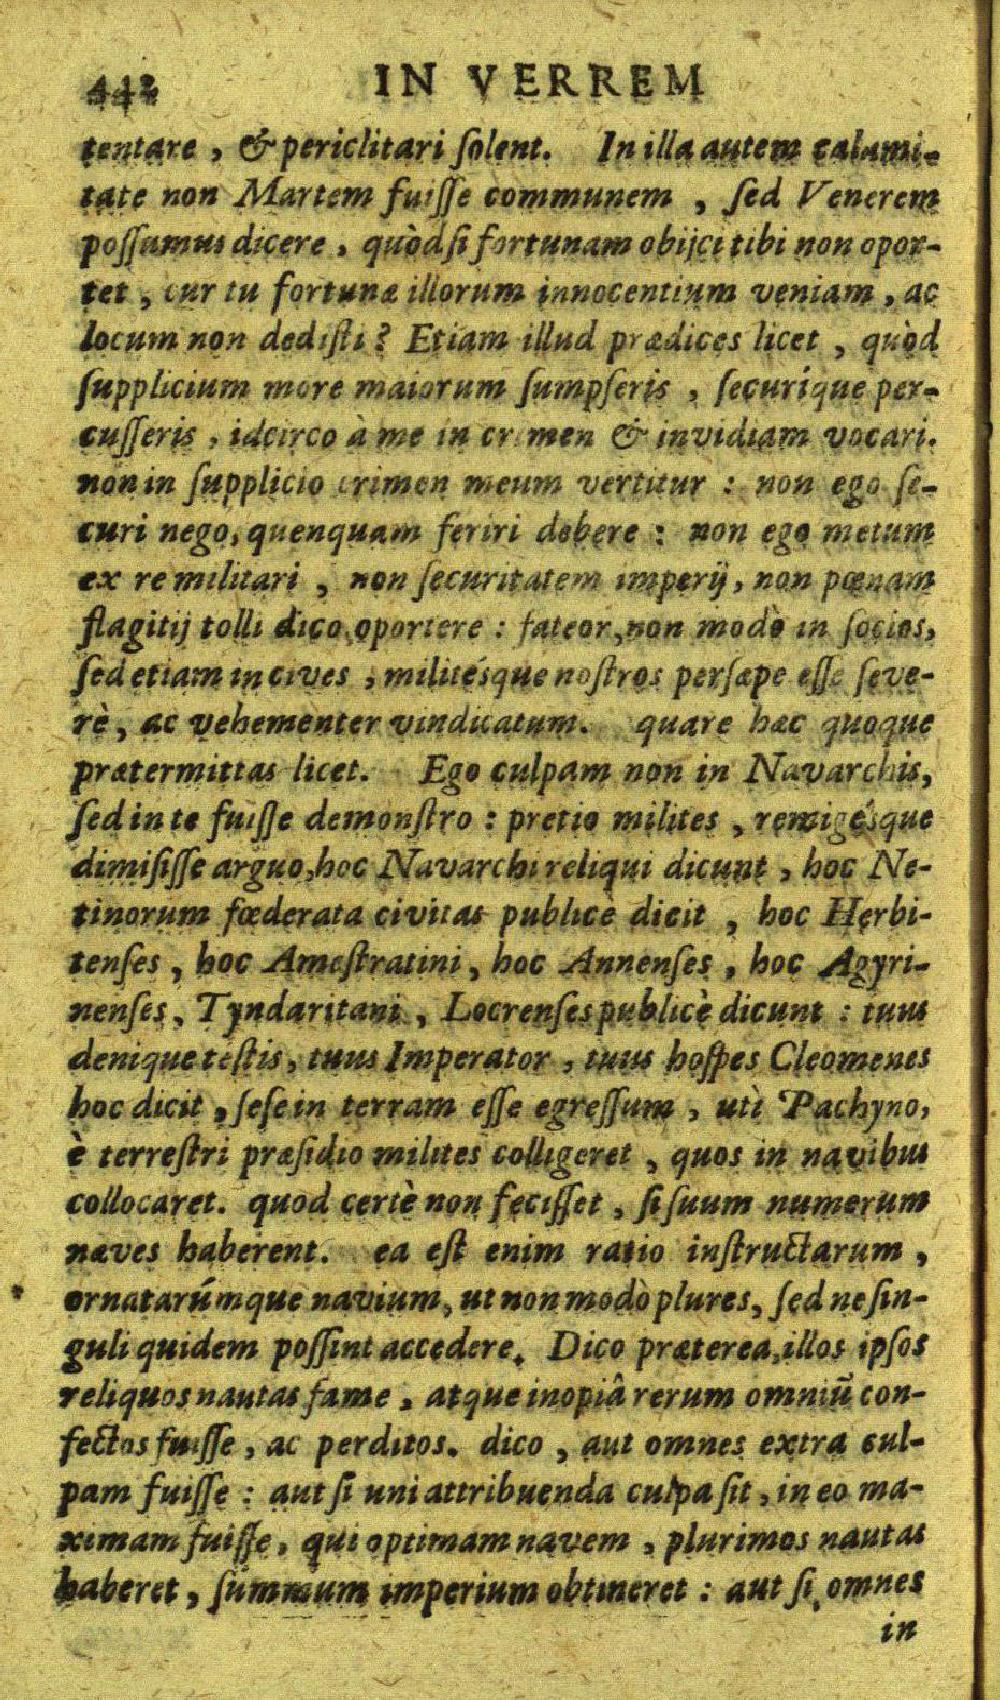 442 IN VERREM
tentare, & periclitari ſolent. In illa autem calami-
tate non Martem fuiſſe communem, ſed Venerem
poſſumus dicere, quòd ſi fortunam obijci tibi non opor-
tet, cur tu fortunæ illorum innocentium veniam, ac
locum non dediſti? Etiam illud prædices licet, quòd
ſupplicium more maiorum ſumpſeris, ſecuríque per-
cuſſeris, idcirco à me in crimen & invidiam vocari.
non in ſupplicio crimen meum vertitur: non ego ſe-
curi nego, quenquam feriri debere: non ego metum
ex re militari, non ſecuritatem imperij, non pœnam
flagitij tolli dico, oportere: fateor, non modò in ſocios,
ſed etiam in cives, militésque noſtros perſæpe eſſe ſeve-
rè, ac vehementer vindicatum. quare hæc quoque
prætermittas licet. Ego culpam non in Navarchis,
ſed in te fuiſſe demonſtro: pretio milites, remigésque
dimiſiſſe arguo, hoc Navarchi reliqui dicunt, hoc Ne-
tinorum fœderata civitas publicè dicit, hoc Herbi-
tenſes, hoc Ameſtratini, hoc Annenſes, hoc Agyri-
nenſes, Tyndaritani, Locrenſes publicè dicunt: tuus
denique teſtis, tuus Imperator, tuus hoſpes Cleomenes
hoc dicit, ſeſe in terram eſſe egreſſum, utì Pachyno,
è terreſtri præſidio milites colligeret, quos in navibus
collocaret. quod certè non feciſſet, ſi ſuum numerum
naves haberent. ea eſt enim ratio inſtructarum,
ornatarúmque navium, ut non modò plures, ſed ne ſin-
guli quidem poſſint accedere. Dico præterea, illos ipſos
reliquos nautas fame, atque inopiâ rerum omniũ con-
fectos fuiſſe, ac perditos. dico, aut omnes extra cul-
pam fuiſſe: aut ſi uni attribuenda culpa ſit, in eo ma-
ximam fuiſſe, qui optimam navem, plurimos nautas
haberet, ſummum imperium obtineret: aut ſi, omnes
in